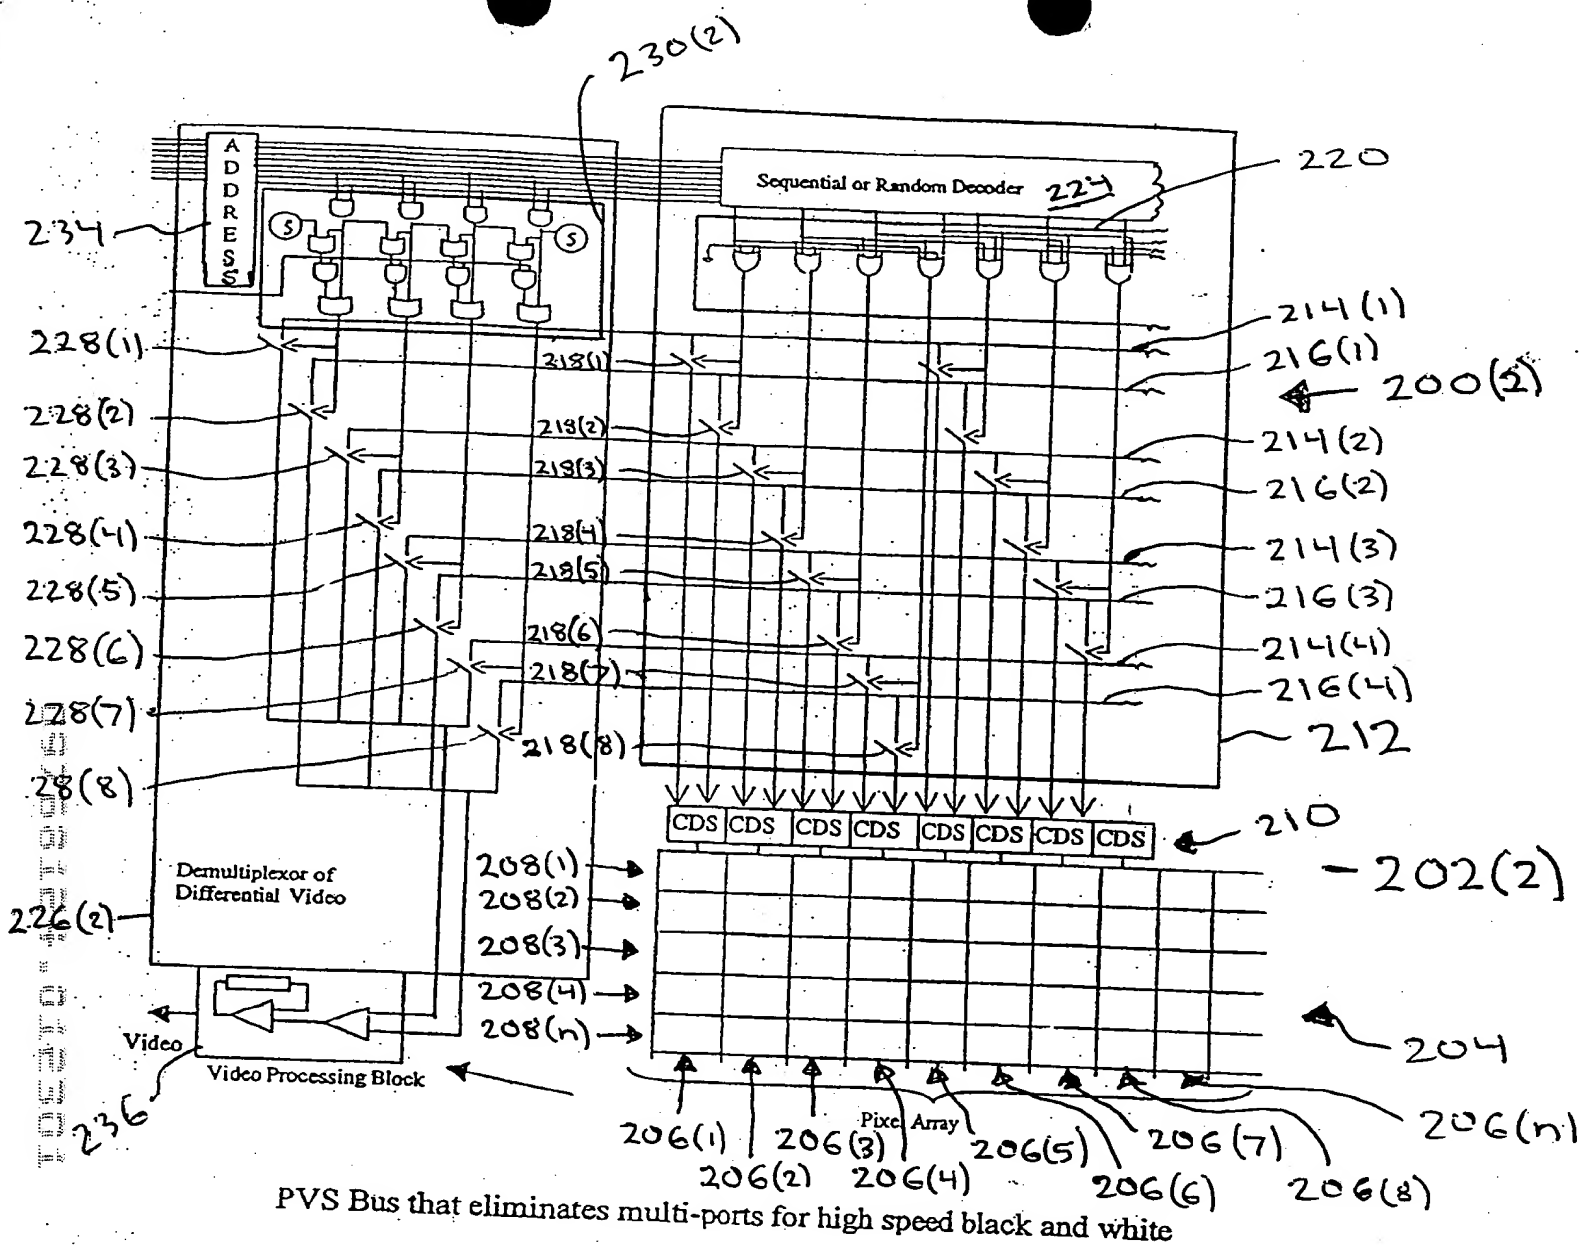 230(2)
ADDRESS
Sequential or Random Decoder 224
220
234
S
S
214(1)
228(1)
218(1)
216(1)
200(2)
228(2)
218(2)
214(2)
228(3)
218(3)
216(2)
228(4)
218(4)
214(3)
228(5)
218(5)
216(3)
228(6)
218(6)
214(4)
228(7)
218(7)
216(4)
28(8)
218(8)
212
CDS CDS CDS CDS CDS CDS CDS CDS
210
208(1)
202(2)
Demultiplexor of
Differential Video
208(2)
226(2)
208(3)
208(4)
208(n)
204
Video
Video Processing Block
236
Pixel Array
206(1)
206(2)
206(3)
206(4)
206(5)
206(6)
206(7)
206(8)
206(n)
PVS Bus that eliminates multi-ports for high speed black and white